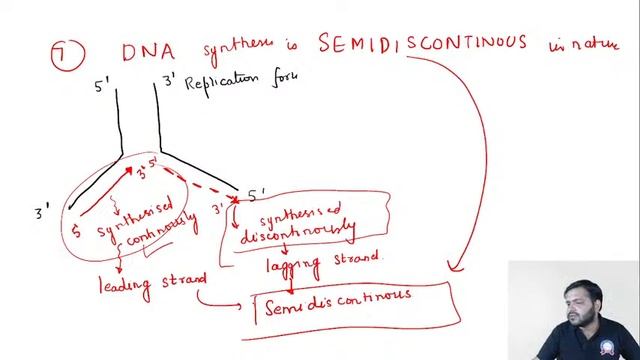 7 DNA synthesis is SEMIDISCONTINOUS in nature
5' 3' Replication fork
3' 5'
3' 5' 3' 5'
synthesised
continously
synthesised
discontinously
leading strand
lagging strand
Semidiscontinous